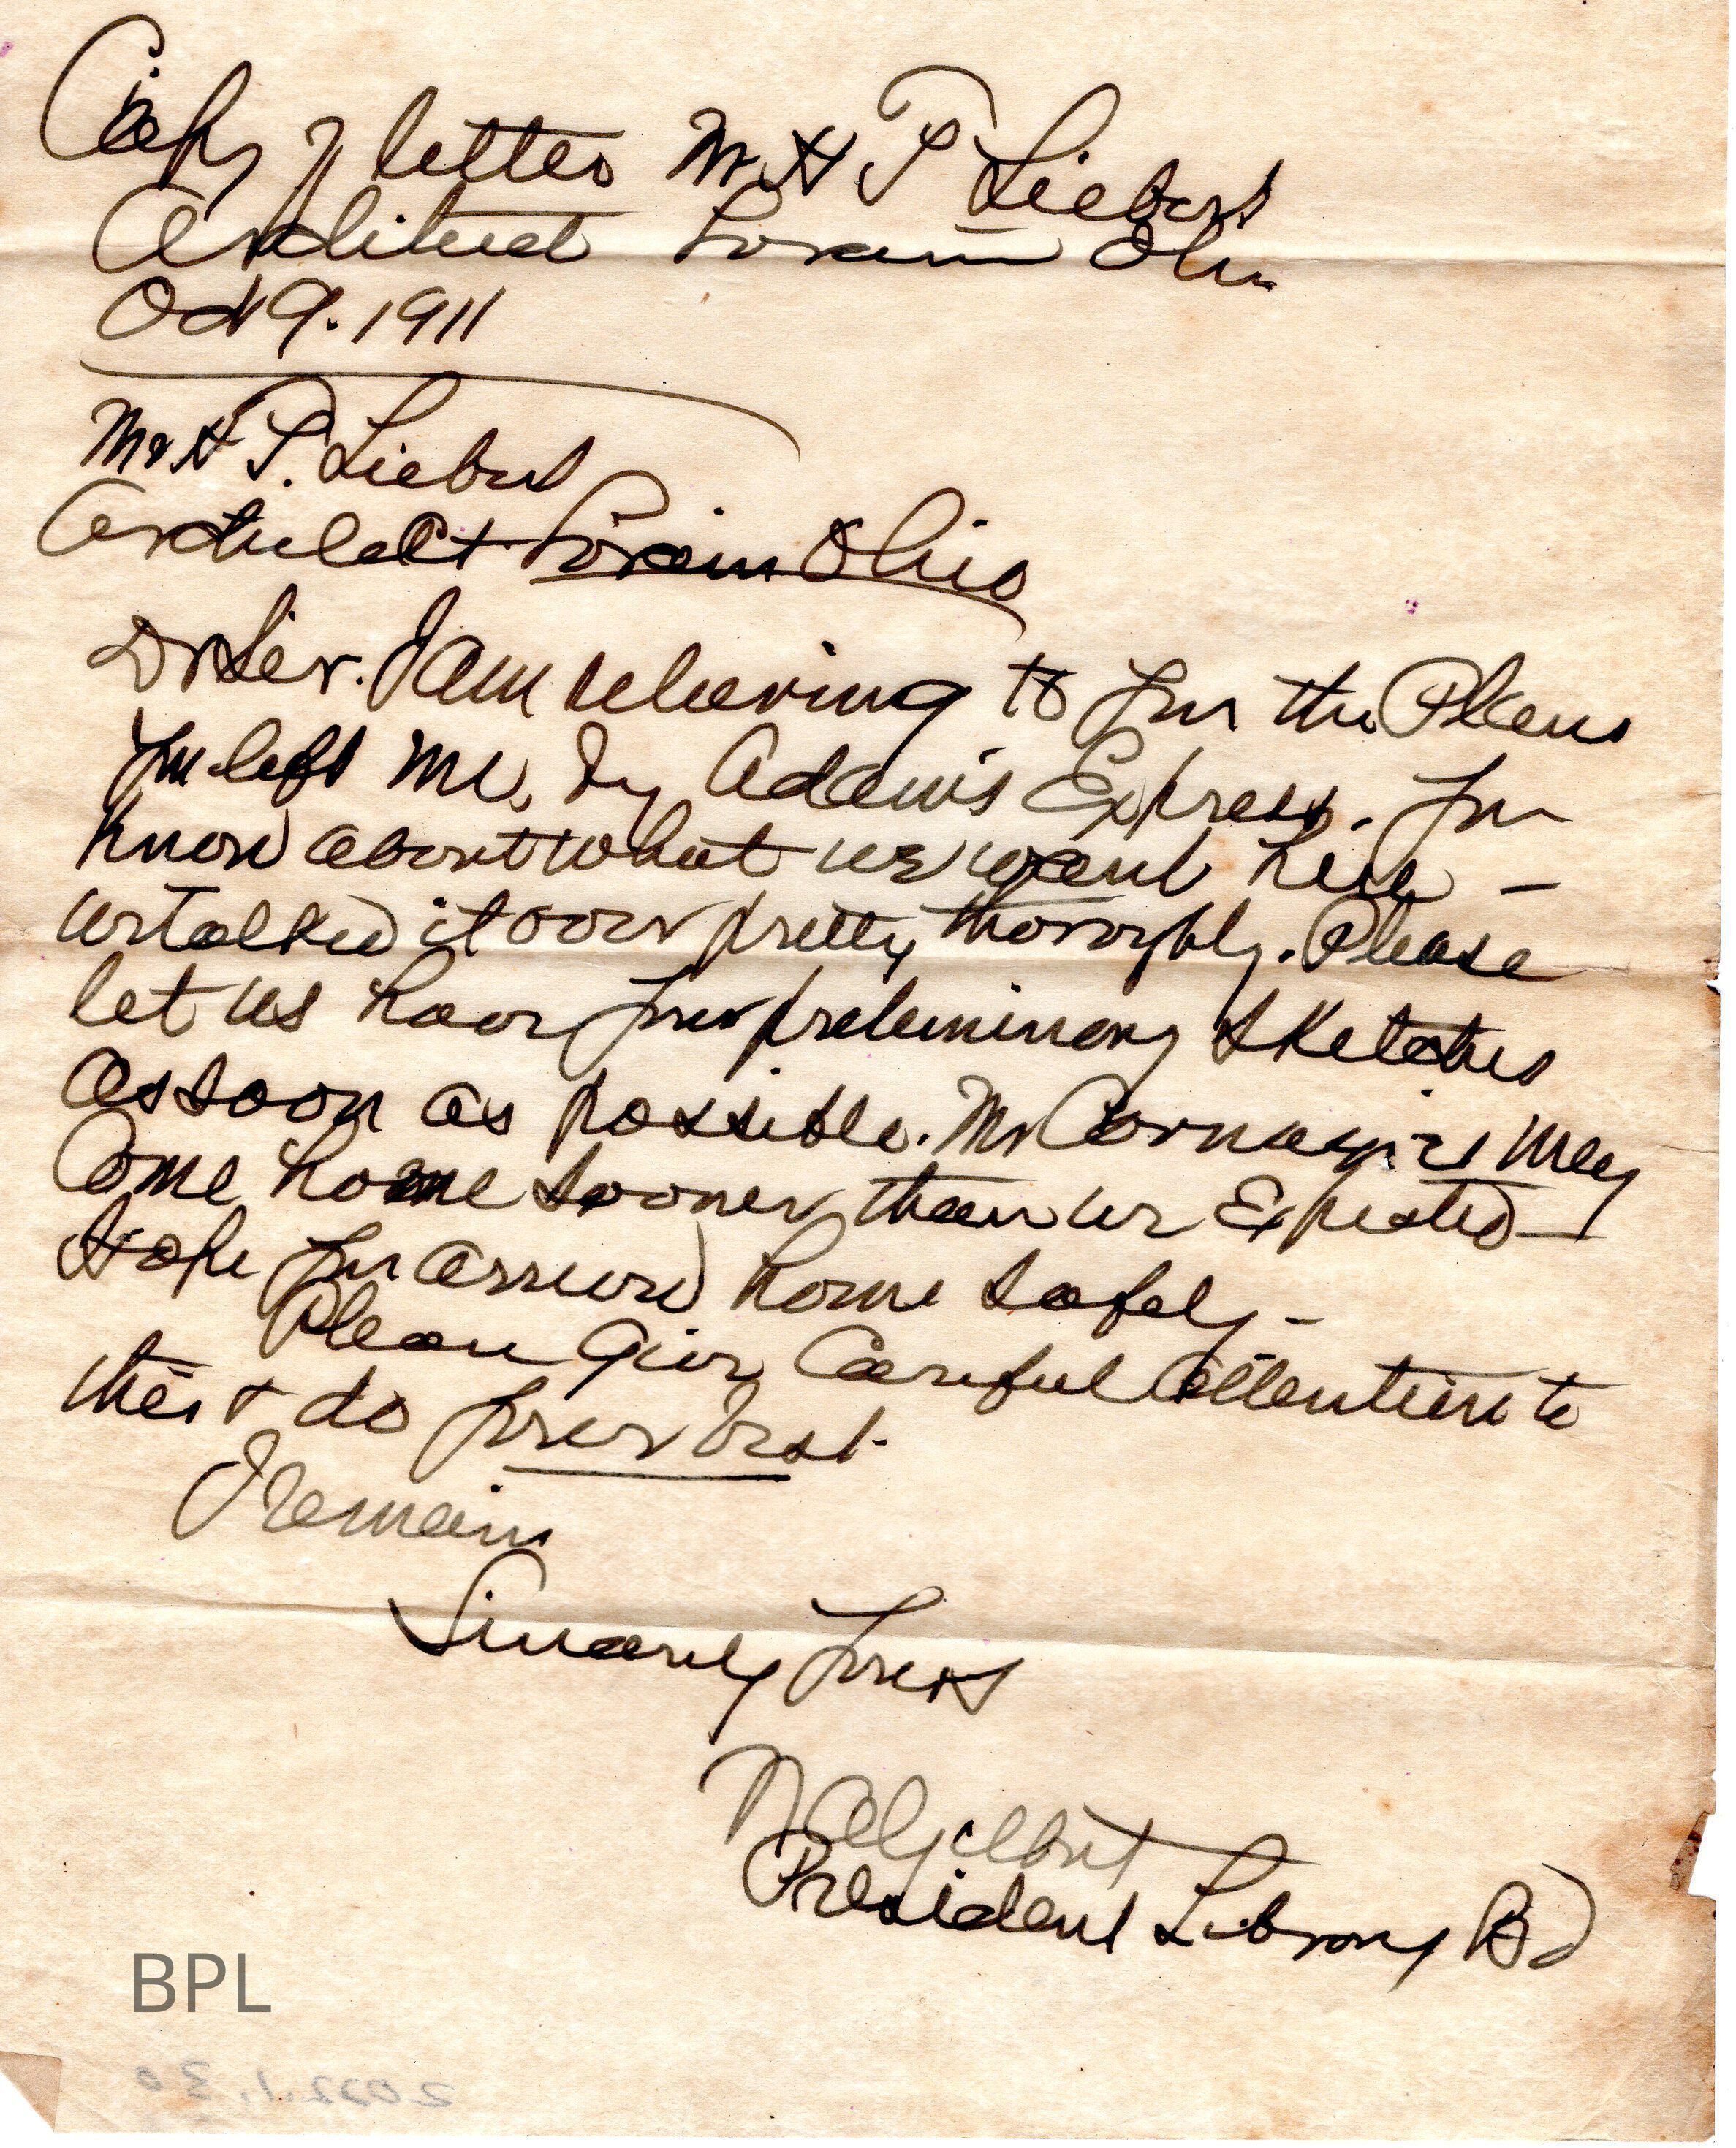 Copy of letter Mr H P Liebert
Architect Lorain Ohio
Oct 9. 1911
Mr H P. Liebert
Architect Lorain Ohio
Dr Sir. I am returning to you the Plans
you left me, by Adams Express. You
know about what we want here -
we talked it over pretty thoroughly. Please
let us have your preliminary sketches
as soon as possible. Mr Carnegie may
come home sooner than we Expected -
Hope you arrived home safely -
Please give careful attention to
this & do your best.
I remain
Sincerely Yours
N A Gilbert
President Library Bd
BPL
2022.1.30